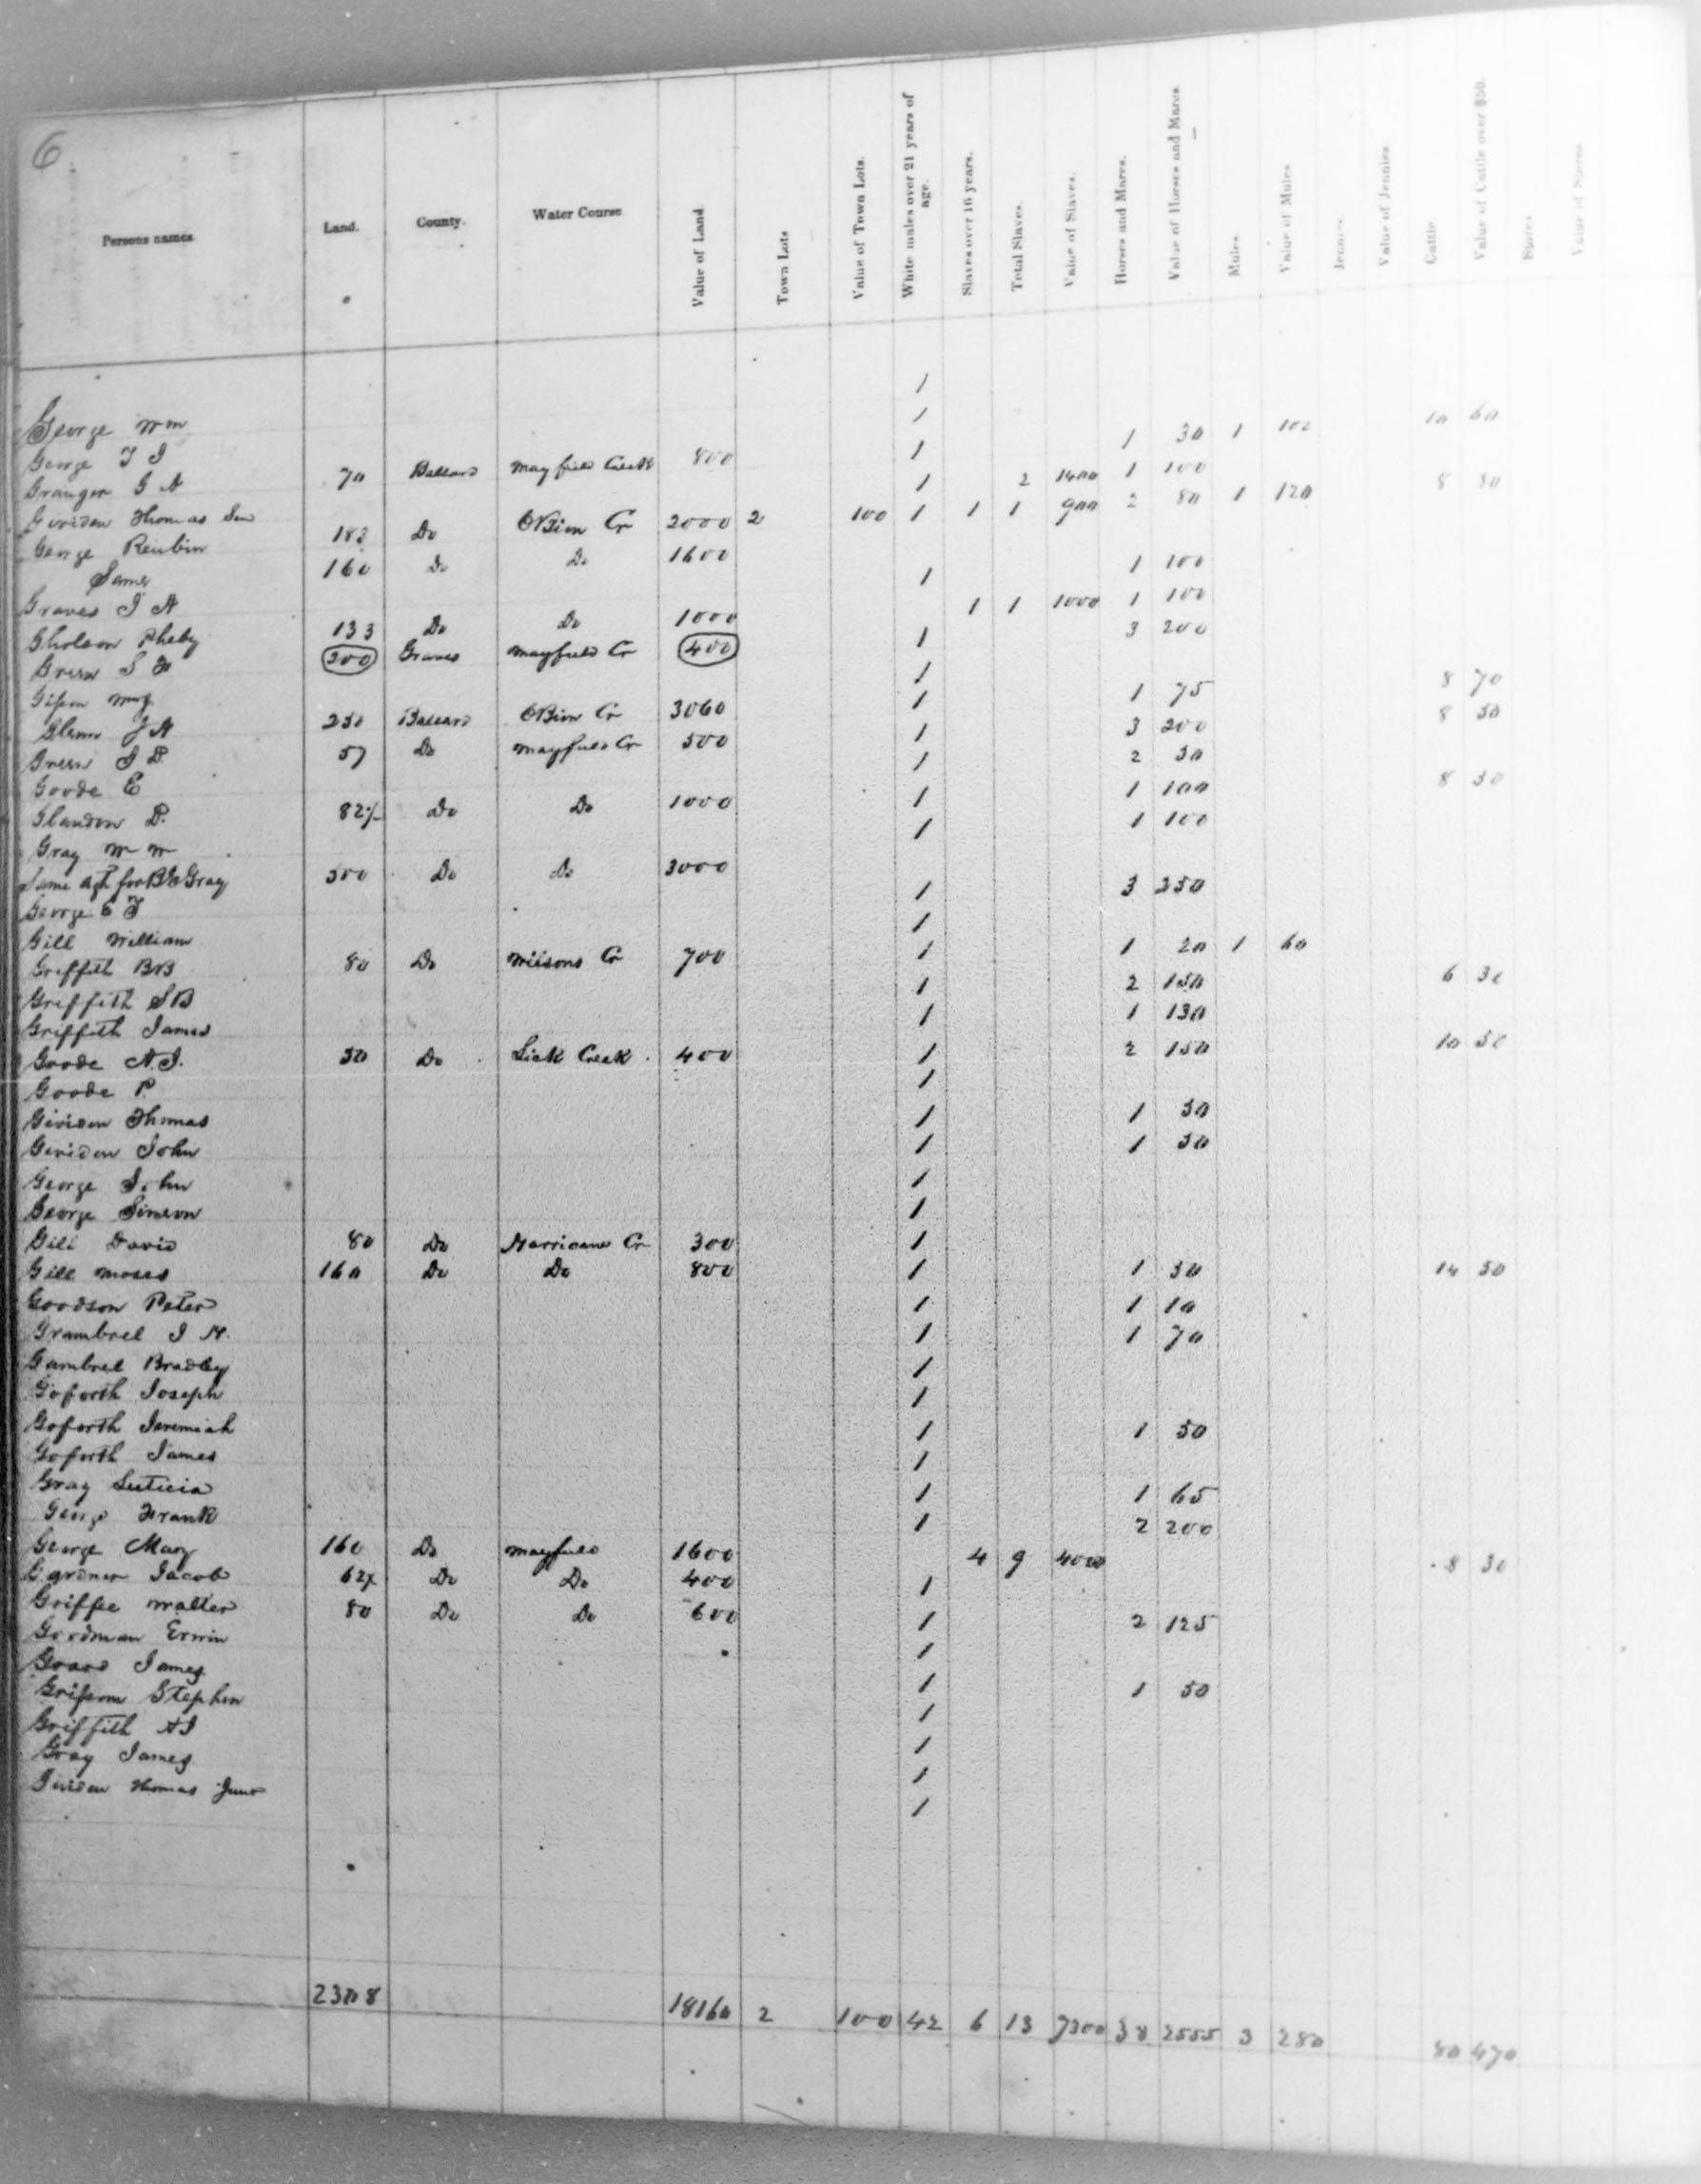 6
Persons names Land. County. Water Course Value of Land Town Lots Value of Town Lots. White males over 21 years of age. Slaves over 16 years. Total Slaves. Value of Slaves. Horses and Mares. Value of Horses and Mares. Mules Value of Mules Jennies Value of Jennies Cattle Value of Cattle over $50. Stores Value of Stores
George Wm 1
George T J 1 1 30 1 100 10 60
Granger G A 70 Ballard Mayfield Creek 800 1 1 100
Gividen Thomas Sen 1 2 1400 2 80 1 120 8 80
George Reubin 182 Do OBion Cr 2000 2 100 1 1 1 900
Same 160 Do Do 1600 1 100
Graves J A 1 1 100
Gholson Pheby 133 Do Do 1000 1 1 1000 3 200
Green S 200 Graves Mayfield Cr 400 1
Gipson 1 1 75 8 70
Glenn J A 250 Ballard OBion Cr 3060 1 3 200 8 50
Green J D. 57 Do Mayfield Cr 500 1 2 50
Goode E 1 1 100 8 30
D. 82½ Do Do 1000 1 1 100
Gray W W 1
Same agt for Gray 500 Do Do 3000
George E T 1 3 250
Gill William 1
Griffith BB 80 Do Wilsons Cr 700 1 1 20 1 60
Griffith S B 1 2 150 6 30
Griffith James 1 1 130
Goode A. J. 50 Do Lick Creek 400 1 2 150 10 50
Goode P. 1
Gividen Thomas 1 1 50
Gividen John 1 1 50
George John 1
George Simeon 1
Gill David 80 Do Harricane Cr 300 1
Gill Moses 160 Do Do 800 1 1 30 14 50
Goodson Peter 1 1 10
Grambrel J H. 1 1 70
Gambrel Bradley 1
Goforth Joseph 1
Goforth Jeremiah 1 1 50
Goforth James 1
Gray Luticia 1 1 65
George Frank 1 2 200
George Mary 160 Do Mayfield 1600 4 9 4000 8 30
Gardner Jacob 62½ Do Do 400 1
Griffee Walter 80 Do Do 600 1 2 125
Goodman Erwin 1
James 1 1 50
Gripom Stephen 1
Griffith A J 1
Gray James 1
Gividen Thomas Junr 1
2308 18160 2 100 42 6 13 7300 38 2555 3 280 80 470